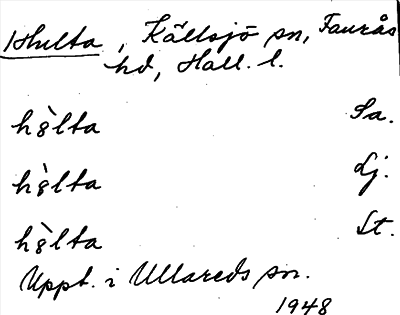 Hulta, Källsjö sn, Faurås
hd, Hall. l.
hò̤lta Sa.
hò̤lta Lj.
hò̤lta St.
Uppt. i Ullareds sn.
1948